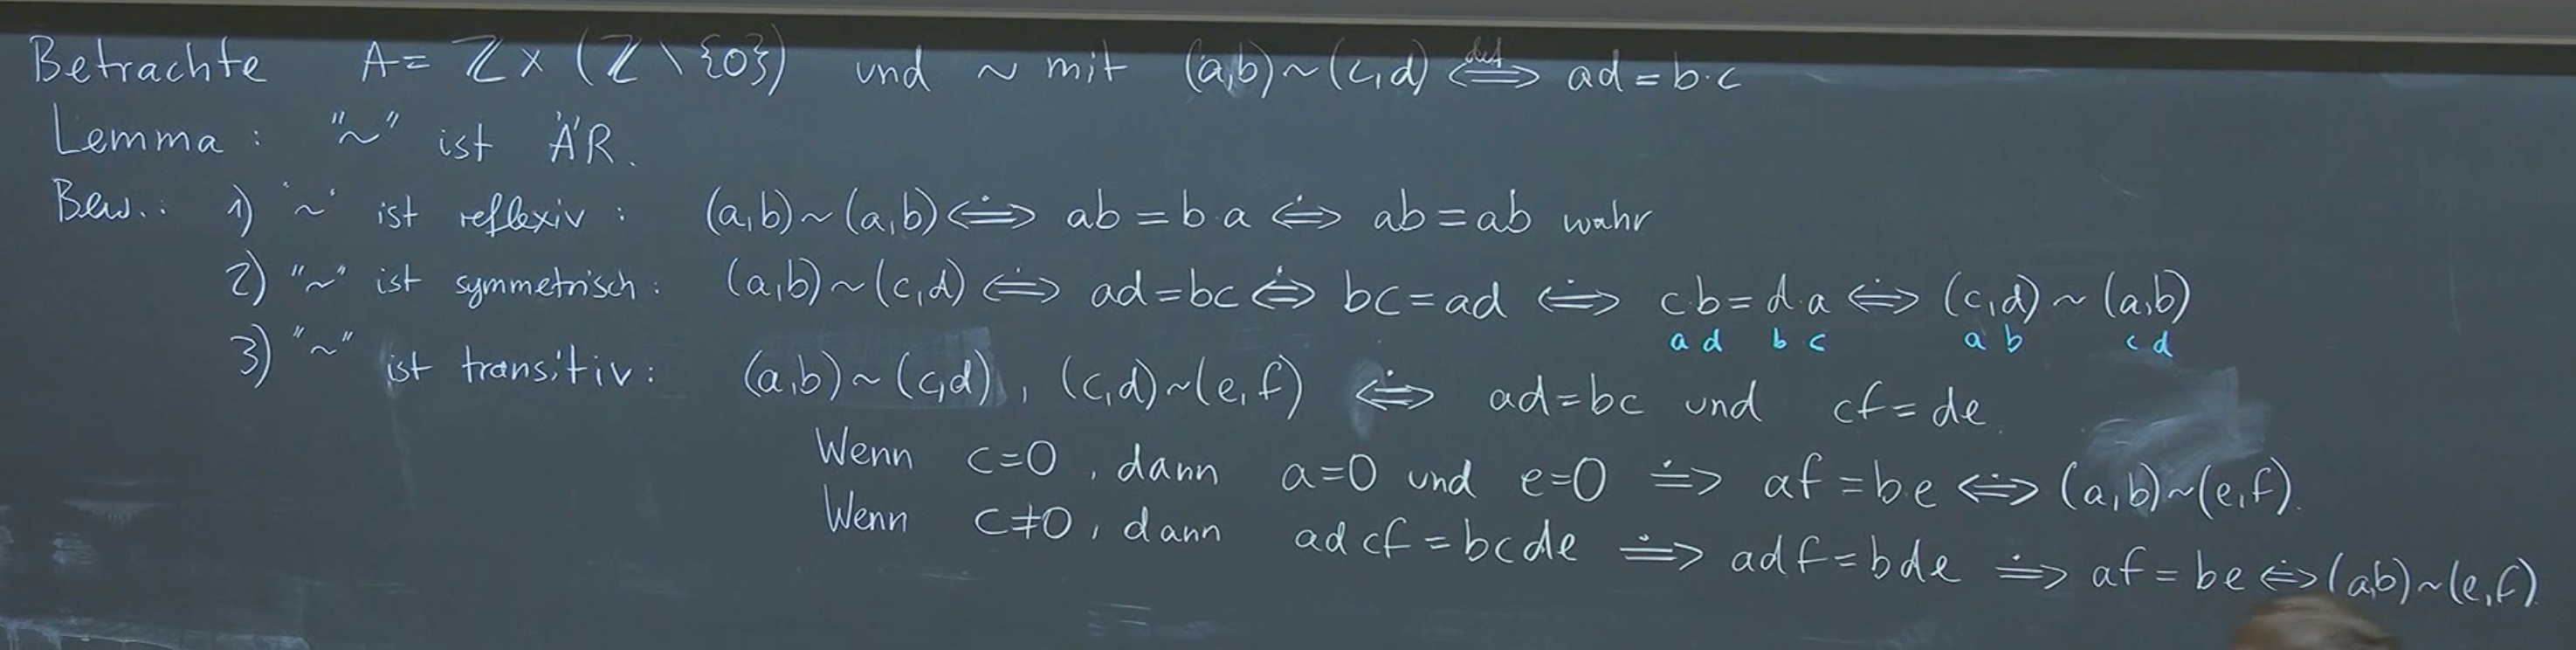 Betrachte A = ℤ × (ℤ \ {0}) und ~ mit (a,b) ~ (c,d) ⟺ def ad = b·c
Lemma : "~" ist ÄR.
Bew.: 1) "~" ist reflexiv : (a,b) ~ (a,b) ⟺ ab = b·a ⟺ ab = ab wahr
2) "~" ist symmetrisch : (a,b) ~ (c,d) ⟺ ad = bc ⟺ bc = ad ⟺ c·b = d·a ⟺ (c,d) ~ (a,b)
a d b c a b c d
3) "~" ist transitiv : (a,b) ~ (c,d) , (c,d) ~ (e,f) ⟺ ad = bc und cf = de.
Wenn c=0 , dann a=0 und e=0 ⟹ af = b·e ⟺ (a,b) ~ (e,f).
Wenn c≠0 , dann adcf = bcde ⟹ adf = bde ⟹ af = be ⟺ (a,b) ~ (e,f).